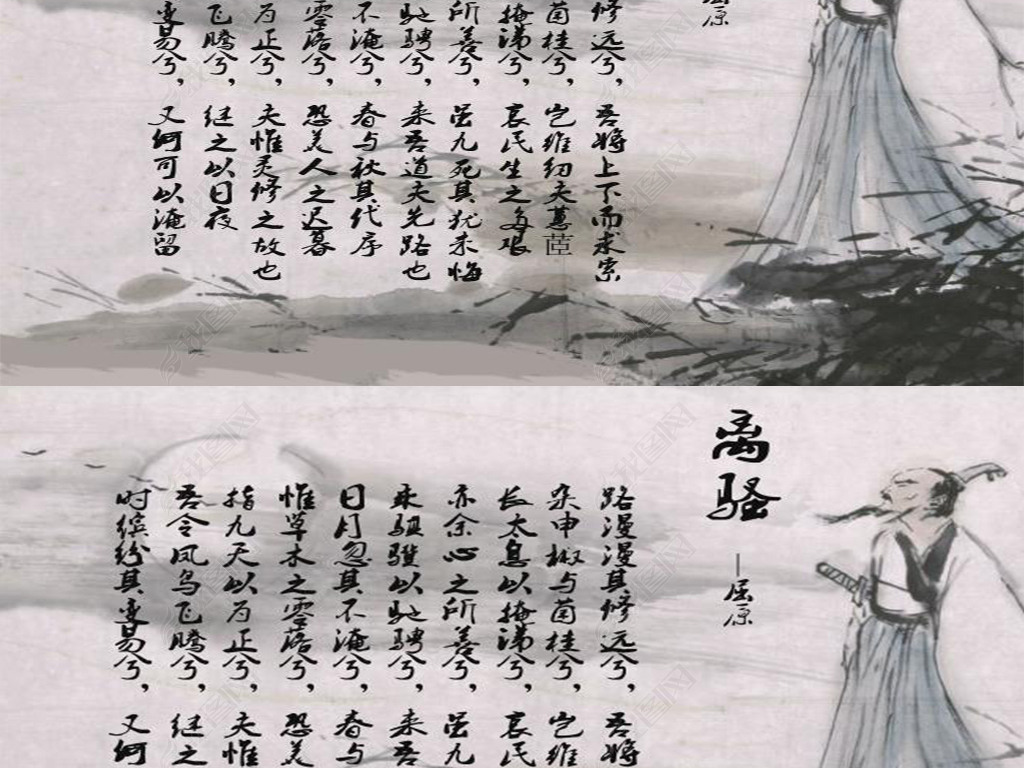 屈原
修远兮，吾将上下而求索
菌桂兮，岂维纫夫蕙茝
掩涕兮，哀民生之多艰
所善兮，虽九死其犹未悔
驰骋兮，来吾道夫先路也
不淹兮，春与秋其代序
零落兮，恐美人之迟暮
为正兮，夫惟灵修之故也
飞腾兮，继之以日夜
变易兮，又何可以淹留
离骚
—屈原
路漫漫其修远兮，吾将
杂申椒与菌桂兮，岂维
长太息以掩涕兮，哀民
亦余心之所善兮，虽九
乘骐骥以驰骋兮，来吾
日月忽其不淹兮，春与
惟草木之零落兮，恐美
指九天以为正兮，夫惟
吾令凤鸟飞腾兮，继之
时缤纷其变易兮，又何